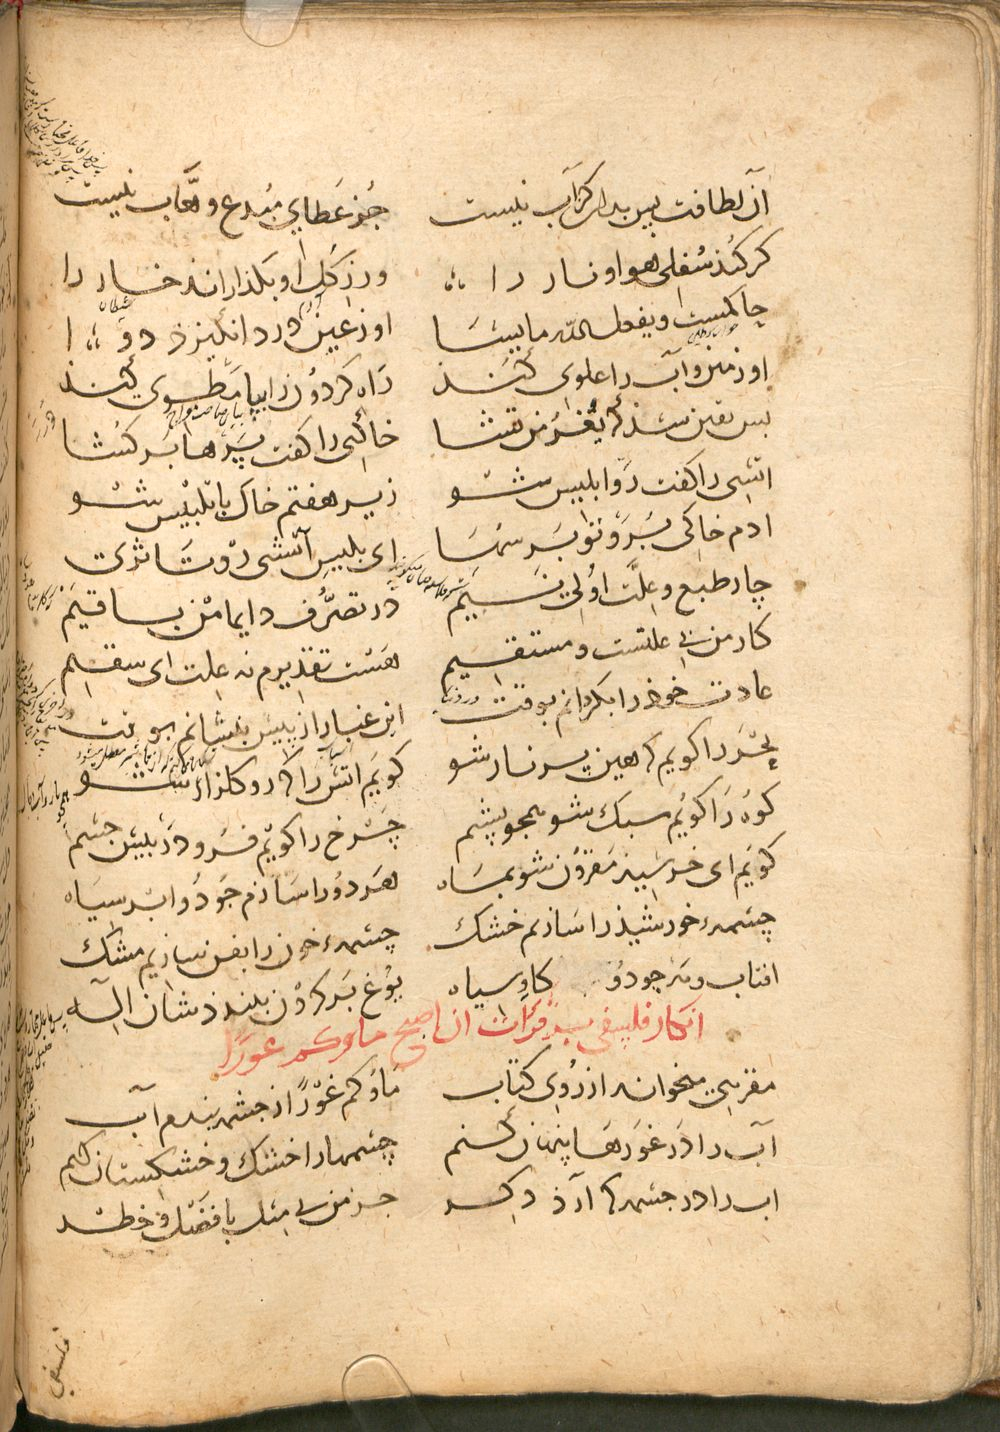 آن لطافت پس بدان کز آب نیست جز عطای مبدع و وهّاب نیست
گر کند سفلی هوا و نار را ور ز گل او بگذراند خار را
حاکمست و یفعل الله ما یشا او ز عین درد انگیزد دوا
او زمین و آب را علوی کند راه گردون را بپا مطوی کند
پس یقین شد که تعز من تشا خاکیی را گفت پرها بر گشا
آتشی را گفت رو ابلیس شو زیر هفتم خاک با تلبیس شو
ادم خاکی برو تو بر سما ای بلیس آتشی رو تا ثری
چار طبع و علت اولی نیم در تصرّف دایما من باقیم
کار من بی علتست و مستقیم هست تقدیرم نه علت ای سقیم
عادت خوذ را بگردانم بوقت این غبار از پیش بنشانم بوقت
بحر را گویم که هین پر نار شو گویم اتش را که رو گلزار شو
کوه را گویم سبک شو همچو پشم چرخ را گویم فرو در پیش چشم
گویم ای خرشیذ مقرون شو بماه هر دو را سازم چو دو ابر سیاه
چشمهء خورشیذ را سازیم خشک چشمهء خون را بفن سازیم مشک
افتاب و مه چو دو گاو سیاه یوغ بر گردن ببنددشان اله
انکار فلسفی بر قرائت ان اصبح ماوکم غورًا
مقریی میخواند از روی کتاب ماؤکم غورًا ز چشمه بندم آب
آب را در غورها پنهان کنم چشمها را خشک و خشکستان کنم
اب را در چشمه که آرذ دگر جز من بی مثل با فضل و خطر
فلسفی